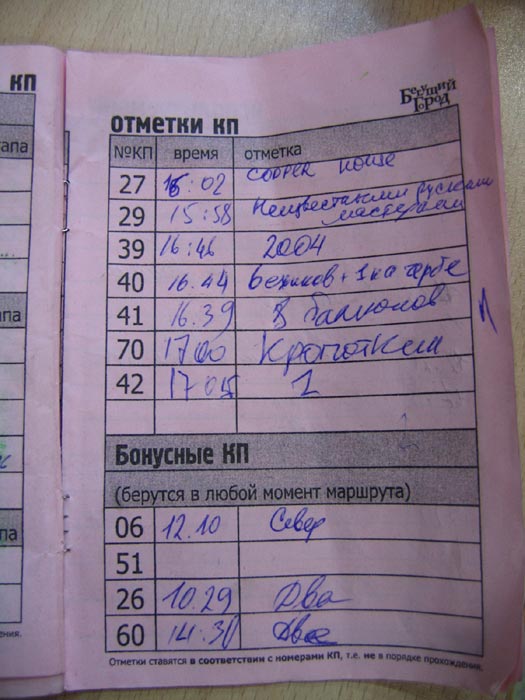 КП
Бегущий
Город
ОТМЕТКИ КП
апа
№КП время отметка
27 16:02 COOPER HOUSE
29 15:58 Неизвестными русскими
мастерами
39 16:46 2004
40 16.44 6 венков + 1 на гербе
41 16.39 8 балконов
70 17 00 Кропоткин
42 17 05 1
апа
Бонусные КП
(берутся в любой момент маршрута)
06 12.10 Север
па
51
26 10.29 Два
60 14:30 Две
ения.
Отметки ставятся в соответствии с номерами КП, т.е. не в порядке прохождения.